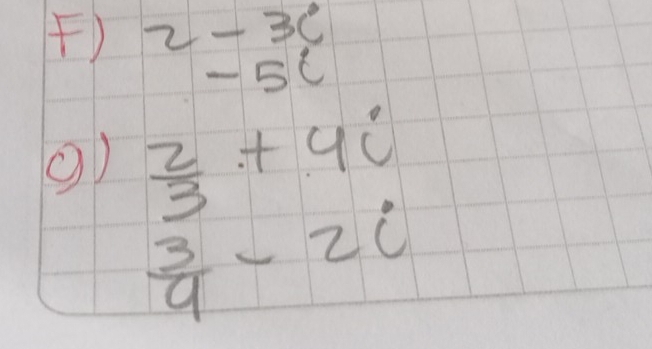 F) 2 - 3i
- 5i
g) 2/3 + 4i
3/4 - 2i